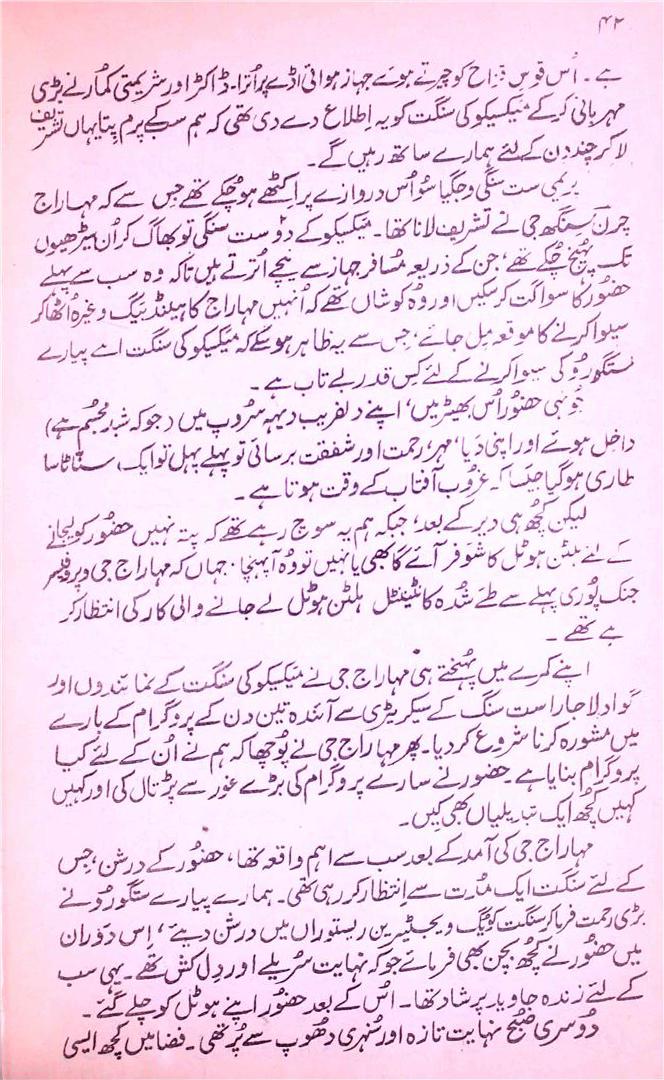 ۴۲
ہے۔ اُس قوسِ قزاح کو چیرتے ہوئے جہاز ہوائی اڈے پر اُترا۔ ڈاکٹر اور شریمتی کمار نے بڑی
مہربانی کر کے میکسیکو کی سنگت کو یہ اِطلاع دے دی تھی کہ ہم سب کے پرم پتا یہاں تشریف
لا کر چند دن کے لئے ہمارے ساتھ رہیں گے۔
پریمی ست سنگی و جگیاسُو اُس دروازے پر اِکٹھے ہو چُکے تھے جِس سے کہ مہاراج
چرن سنگھ جی نے تشریف لانا تھا۔ میکسیکو کے دو ست سنگی تو بھاگ کر اُن سیڑھیوں
تک پہنچ چُکے تھے، جن کے ذریعہ مُسافر جہاز سے نیچے اُترتے ہیں تاکہ وہ سب سے پہلے
حضُور کا سواگت کر سکیں اور وُہ کوشاں تھے کہ اُنہیں مہاراج کا ہینڈ بیگ وغیرہ اُٹھا کر
سیوا کرنے کا موقعہ مِل جائے، جِس سے یہ ظاہر ہو سکے کہ میکسیکو کی سنگت اپنے پیارے
ستگورُو کی سیوا کرنے کے لئے کِس قدر بے تاب ہے۔
جُونہی حضُور اُس بھیڑ میں، اپنے دلفریب دیہہ سرُوپ میں (جو کہ شبد مُجسّم ہے)
داخِل ہوئے اور اپنی دَیا، مہر، رحمت اور شفقت برسائی تو پہلے پہل تو ایک سناٹا سا
طاری ہو گیا جیسا کہ غرُوب آفتاب کے وقت ہوتا ہے۔
لیکن کُچھ ہی دیر کے بعد، جبکہ ہم یہ سوچ رہے تھے کہ پتہ نہیں حضُور کو لیجانے
کے لئے ہلٹن ہوٹل کا شوفر آئے گا بھی یا نہیں تو وُہ آ پہنچا۔ جہاں کہ مہاراج جی و پروفیسر
جنک پُوری پہلے سے طے شُدہ کانٹینٹل ہلٹن ہوٹل لے جانے والی کار کی انتظار کر
ہے تھے۔
اپنے کمرے میں پہنچتے ہی مہاراج جی نے میکسیکو کی سنگت کے نمائندوں اور
گواد لاجارا ست سنگ کے سیکریٹری سے آئندہ تین دن کے پروگرام کے بارے
میں مشورہ کرنا شروع کر دیا۔ پھر مہاراج جی نے پُوچھا کہ ہم نے اُن کے لئے کیا
پروگرام بنایا ہے۔ حضُور نے سارے پروگرام کی بڑے غور سے پڑتال کی اور کہیں
کہیں کُچھ ایک تبدیلیاں بھی کیں۔
مہاراج جی کی آمد کے بعد سب سے اہم واقعہ تھا، حضُور کے درشن، جِس
کے لئے سنگت ایک مُدّت سے اِنتظار کر رہی تھی۔ ہمارے پیارے ستگورُو نے
بڑی رحمت فرما کر سنگت کو ویجیٹیرین ریستوراں میں درشن دیئے، اِس دَوران
میں حضُور نے کُچھ بچن بھی فرمائے جو کہ نہایت سُریلے اور دِل کش تھے۔ یہی سب
کے لئے زندہ جاوید پرشاد تھا۔ اُس کے بعد حضُور اپنے ہوٹل کو چلے گئے۔
دُوسری صُبح نہایت تازہ اور سُنہری دھُوپ سے پُر تھی۔ فضا میں کُچھ ایسی